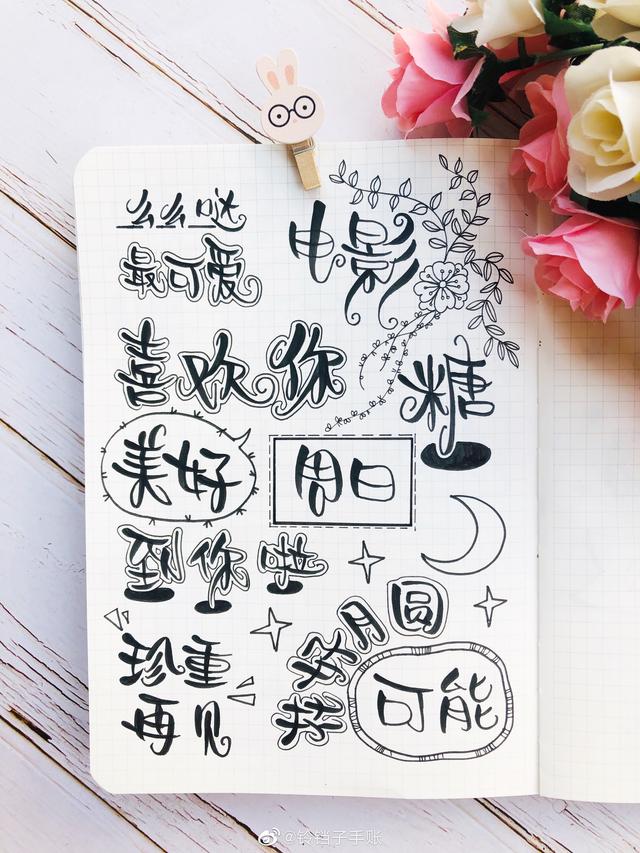 么么哒
电影
最可爱
喜欢你
糖
美好
周日
到你啦
花好月圆
珍重
再见
可能
@铃铛子手账